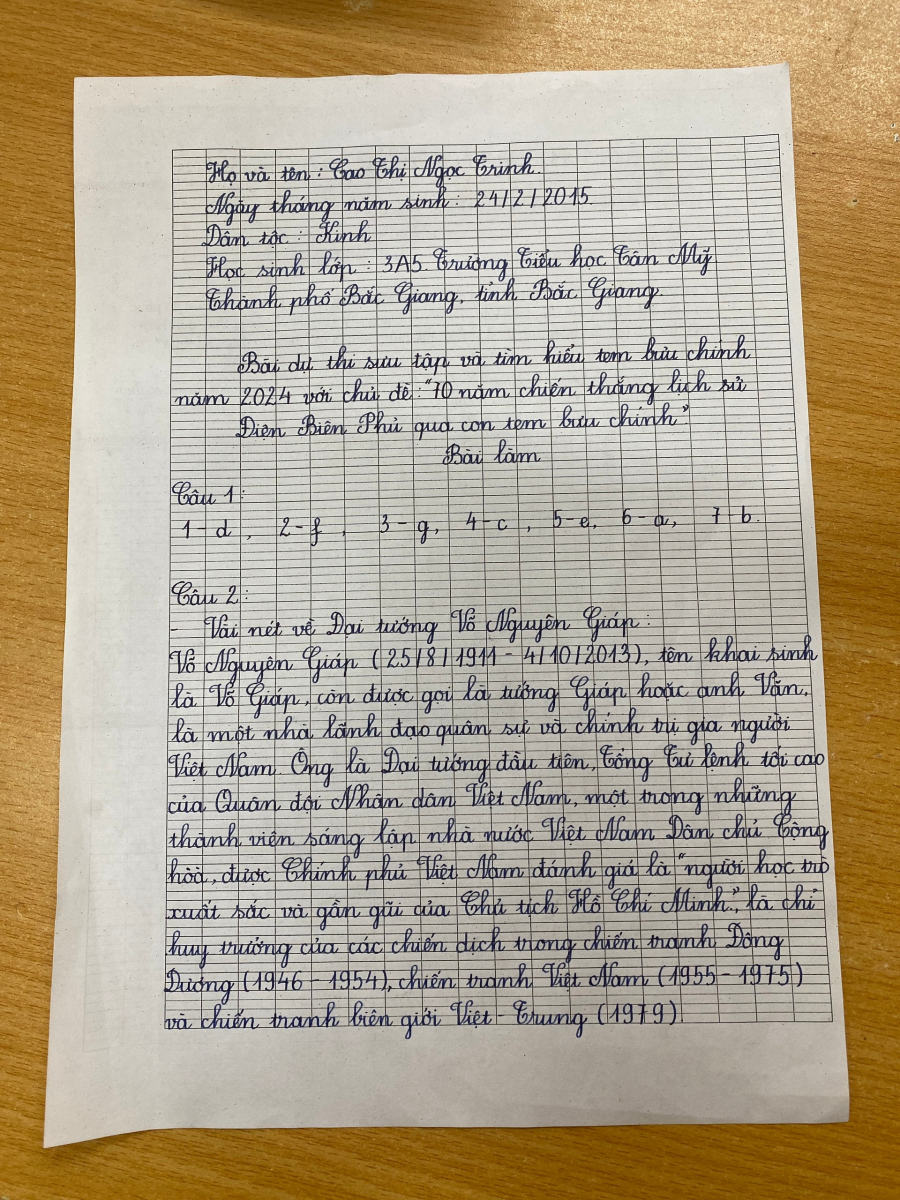 Họ và tên : Cao Thị Ngọc Trinh.
Ngày tháng năm sinh : 24/2/2015.
Dân tộc : Kinh
Học sinh lớp : 3A5. Trường Tiểu học Tân Mỹ
Thành phố Bắc Giang, tỉnh Bắc Giang.
Bài dự thi sưu tập và tìm hiểu tem bưu chính
năm 2024 với chủ đề : "70 năm chiến thắng lịch sử
Điện Biên Phủ qua con tem bưu chính".
Bài làm
Câu 1 :
1 - d , 2 - f , 3 - g, 4 - c , 5 - e, 6 - a, 7 - b.
Câu 2 :
- Vài nét về Đại tướng Võ Nguyên Giáp :
Võ Nguyên Giáp (25/8/1911 - 4/10/2013), tên khai sinh
là Võ Giáp, còn được gọi là tướng Giáp hoặc anh Văn,
là một nhà lãnh đạo quân sự và chính trị gia người
Việt Nam. Ông là Đại tướng đầu tiên, Tổng Tư lệnh tối cao
của Quân đội Nhân dân Việt Nam, một trong những
thành viên sáng lập nhà nước Việt Nam Dân chủ Cộng
hòa, được Chính phủ Việt Nam đánh giá là "người học trò
xuất sắc và gần gũi của Chủ tịch Hồ Chí Minh", là chỉ
huy trưởng của các chiến dịch trong chiến tranh Đông
Dương (1946 - 1954), chiến tranh Việt Nam (1955 - 1975)
và chiến tranh biên giới Việt - Trung (1979).